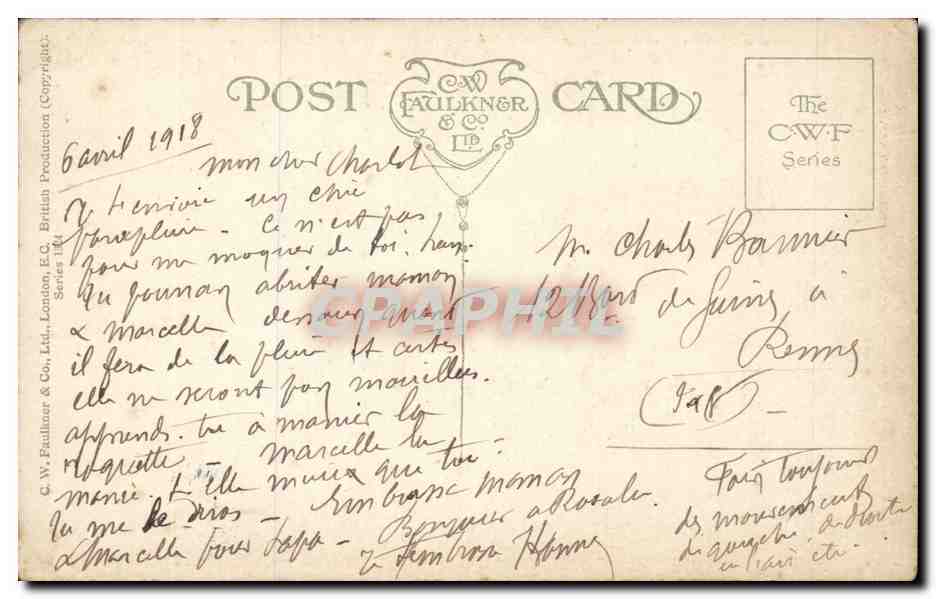 C.W. Faulkner & Co., Ltd., London, E.C. British Production (Copyright).
Series 1
POST CARD
C.W
FAULKNER
& Co
LTD
The
C.W.F
Series
6 avril 1918
mon cher Charlot
Je t'envoie un chic
parapluie - Ce n'est pas
pour me moquer de toi.
tu pourras abriter maman
& Marcelle dessous quand
il fera de la pluie et certes
elle ne seront pas mouillées.
apprends tu à manier la
raquette - Marcelle la
manie t'elle mieux que toi.
tu me le diras - Embrasse maman
& Marcelle pour papa - Bonjour a Rosalie
Je t'embrasse
M. Charles Bannier
42 Bard de à
Rennes
(I & V) -
Fais toujours
des mouvements
de gauche, de droite
en l'air etc.
CPARPHIL